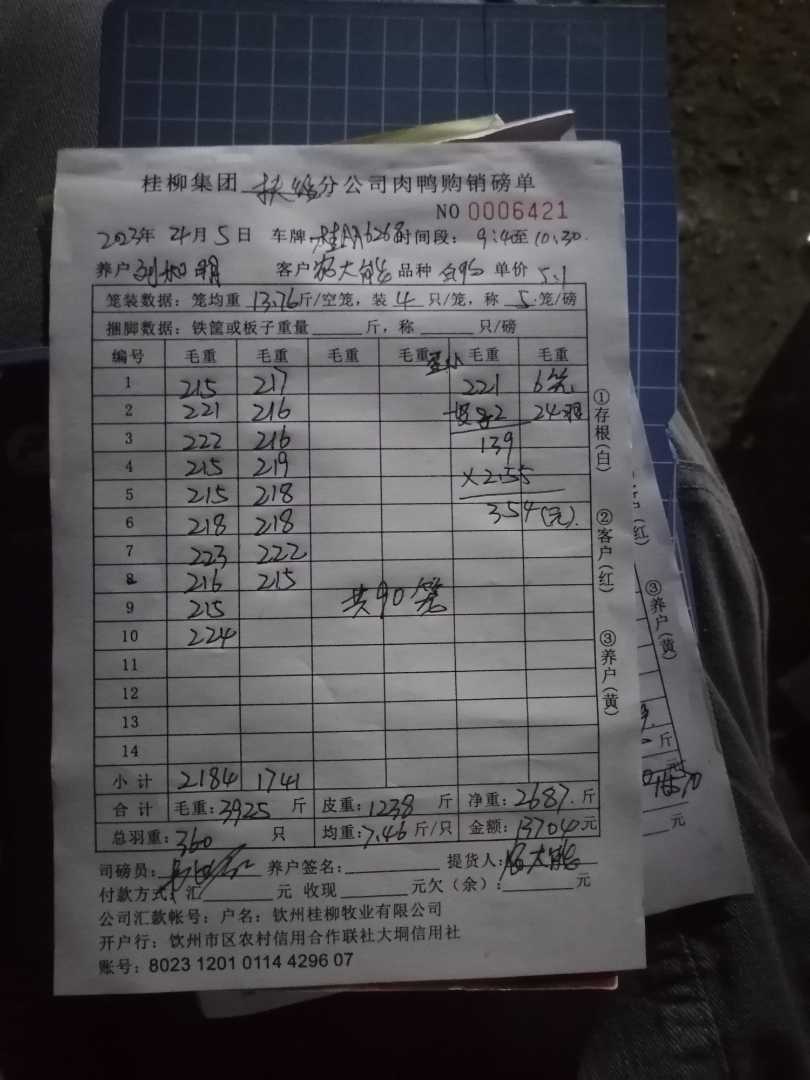 桂柳集团 扶绥分公司肉鸭购销磅单
NO 0006421
2023年 4月 5日 车牌: 时间段: 9:4至10:30.
养户 客户 农大能 品种 单价 5.1
笼装数据: 笼均重 13.76斤/空笼, 装 4 只/笼, 称 5 笼/磅
捆脚数据: 铁筐或板子重量 斤, 称 只/磅
编号 毛重 毛重 毛重 毛重 毛重 毛重
1 215 217 221 6笼
2 221 216 24
3 222 216 139
4 215 219 ×2.55
5 215 218 354(元).
6 218 218
7 223 222
8 216 215
9 215 共90笼
10 224
11
12
13
14
小计 2184 1741
合计 毛重: 3925 斤 皮重: 1238 斤 净重: 2687. 斤
总羽重: 360 只 均重: 7.46 斤/只 金额: 13704 元
司磅员: 养户签名: 提货人: 农大能
付款方式: 汇 元 收现 元欠(余): 元
公司汇款帐号: 户名: 钦州桂柳牧业有限公司
开户行: 钦州市区农村信用合作联社大垌信用社
账号: 8023 1201 0114 4296 07
①存根(白)
②客户(红)
③养户(黄)
(红)
③养户(黄)
斤
元
元